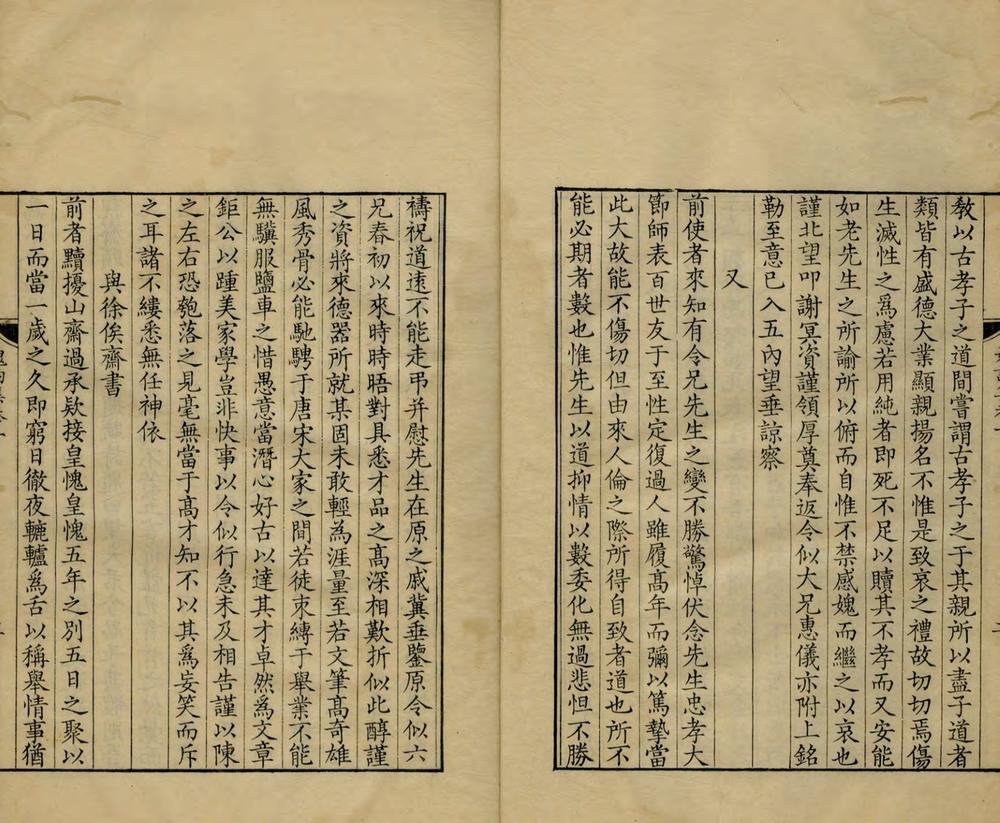 教以古孝子之道間嘗謂古孝子之于其親所以盡子道者
類皆有盛德大業顯親揚名不惟是致哀之禮故切切焉傷
生滅性之爲慮若用純者即死不足以贖其不孝而又安能
如老先生之所諭所以俯而自惟不禁感媿而繼之以哀也
謹北望叩謝冥資謹領厚奠奉返令似大兄惠儀亦附上銘
勒至意已入五內望垂諒察
又
前使者來知有令兄先生之變不勝驚悼伏念先生忠孝大
節師表百世友于至性定復過人雖履高年而彌以篤摯當
此大故能不傷切但由來人倫之際所得自致者道也所不
能必期者數也惟先生以道抑情以數委化無過悲怛不勝
禱祝道遠不能走弔并慰先生在原之戚冀垂鑒原令似六
兄春初以來時時晤對具悉才品之高深相歎折似此醇謹
之資將來德器所就某固未敢輕為涯量至若文筆高奇雄
風秀骨必能馳騁于唐宋大家之間若徒束縛于舉業不能
無驥服鹽車之惜愚意當潛心好古以達其才卓然為文章
鉅公以踵美家學豈非快事以令似行急未及相告謹以陳
之左右恐匏落之見毫無當于高才知不以其爲妄笑而斥
之耳諸不縷悉無任神依
與徐俟齋書
前者黷擾山齋過承欵接皇愧皇愧五年之別五日之聚以
一日而當一歲之久即窮日徹夜轆轤爲舌以稱舉情事猶